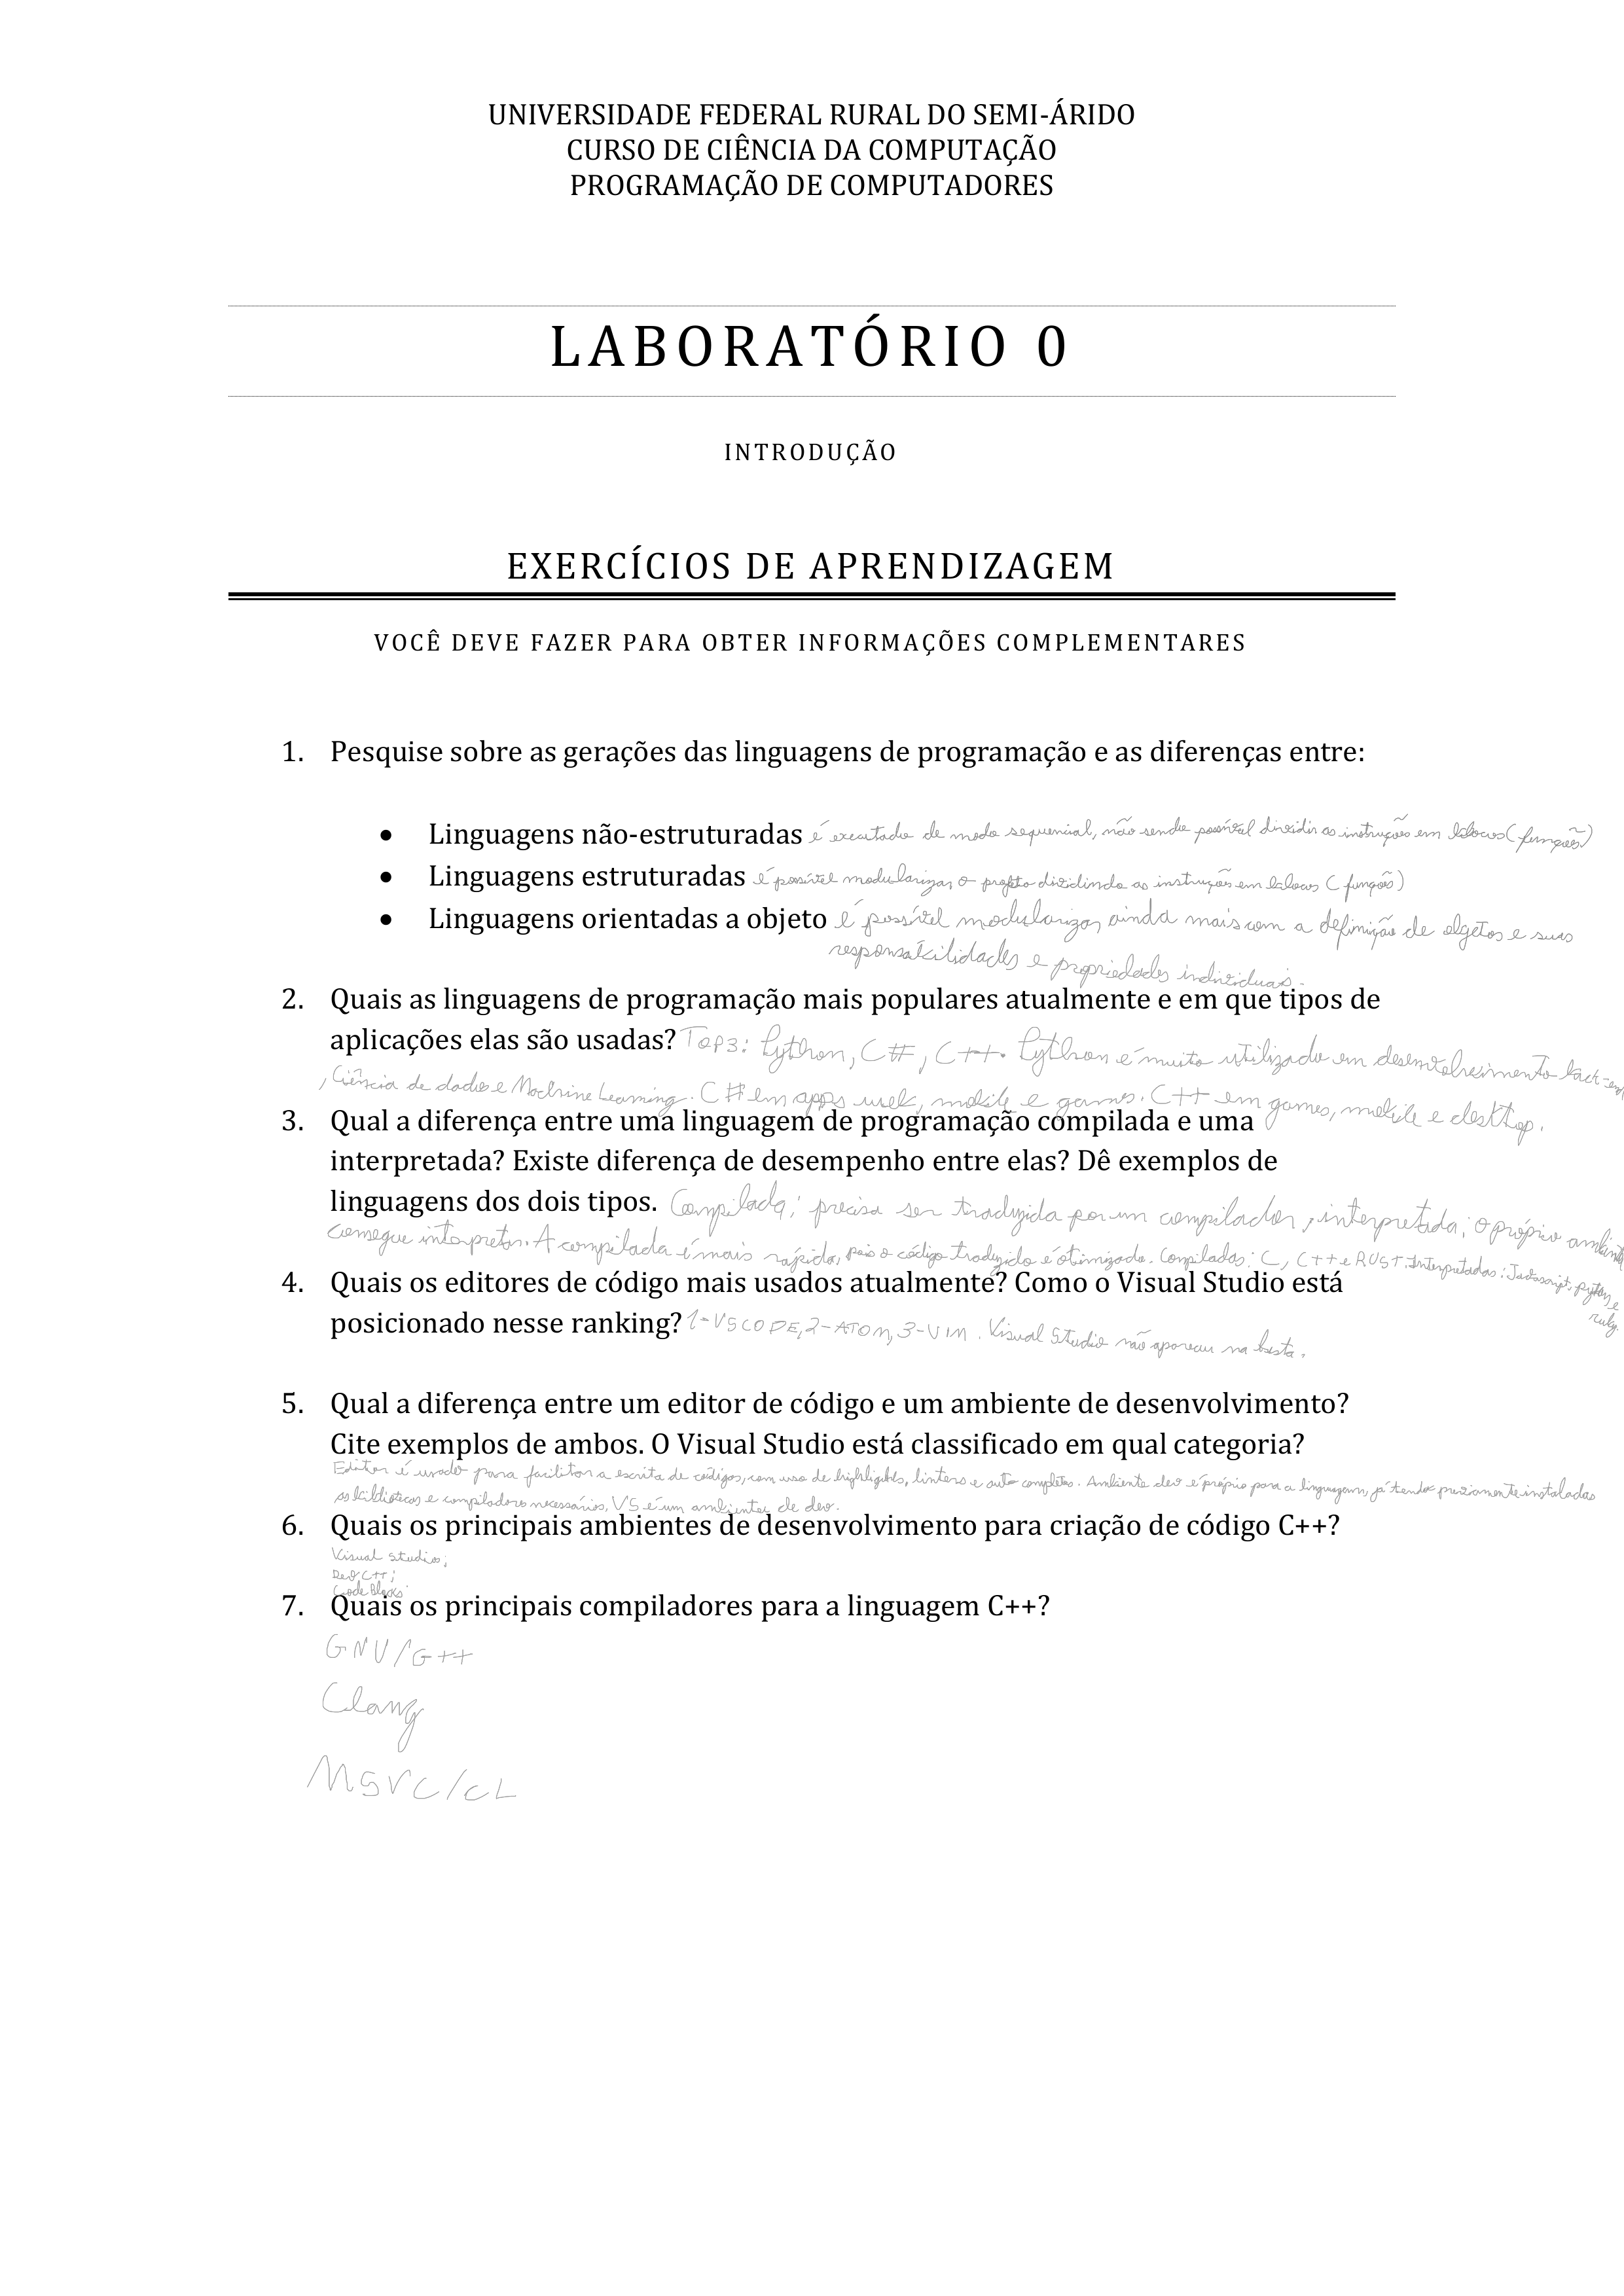 UNIVERSIDADE FEDERAL RURAL DO SEMI-ÁRIDO
CURSO DE CIÊNCIA DA COMPUTAÇÃO
PROGRAMAÇÃO DE COMPUTADORES
LABORATÓRIO 0
INTRODUÇÃO
EXERCÍCIOS DE APRENDIZAGEM
VOCÊ DEVE FAZER PARA OBTER INFORMAÇÕES COMPLEMENTARES
1. Pesquise sobre as gerações das linguagens de programação e as diferenças entre:
• Linguagens não-estruturadas é executado de modo sequencial, não sendo possível dividir as instruções em blocos (funções)
• Linguagens estruturadas é possível modularizar o projeto dividindo as instruções em blocos (funções)
• Linguagens orientadas a objeto é possível modularizar ainda mais com a definição de objetos e suas
responsabilidades e propriedades individuais.
2. Quais as linguagens de programação mais populares atualmente e em que tipos de
aplicações elas são usadas? TOP3: Python, C#, C++. Python é muito utilizado em desenvolvimento back-end
, Ciência de dados e Machine Learning. C# em apps web, mobile e games. C++ em games, mobile e desktop.
3. Qual a diferença entre uma linguagem de programação compilada e uma
interpretada? Existe diferença de desempenho entre elas? Dê exemplos de
linguagens dos dois tipos. Compilada: precisa ser traduzida por um compilador, interpretada: o próprio ambiente
consegue interpretar. A compilada é mais rápida, pois o código traduzido é otimizado. Compiladas: C, C++ e RUST. Interpretadas: Javascript, python e
ruby.
4. Quais os editores de código mais usados atualmente? Como o Visual Studio está
posicionado nesse ranking? 1-VSCODE, 2-ATOM, 3-VIM. Visual Studio não apareceu na lista.
5. Qual a diferença entre um editor de código e um ambiente de desenvolvimento?
Cite exemplos de ambos. O Visual Studio está classificado em qual categoria?
Editor é usado para facilitar a escrita de códigos, com uso de highlights, linters e auto completes. Ambiente dev é próprio para a linguagem, já tendo previamente instaladas
as bibliotecas e compiladores necessários. VS é um ambiente de dev.
6. Quais os principais ambientes de desenvolvimento para criação de código C++?
Visual Studios;
Dev C++;
Code Blocks
7. Quais os principais compiladores para a linguagem C++?
GNU/G++
Clang
MSVC/CL